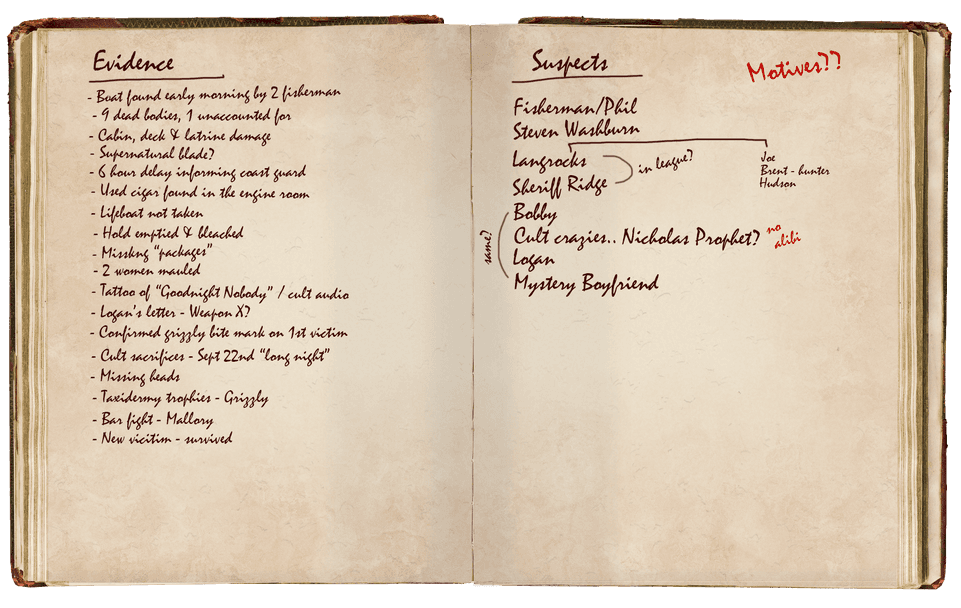 Evidence
- Boat found early morning by 2 fisherman
- 9 dead bodies, 1 unaccounted for
- Cabin, deck & latrine damage
- Supernatural blade?
- 6 hour delay informing coast guard
- Used cigar found in the engine room
- Lifeboat not taken
- Hold emptied & bleached
- Misskng "packages"
- 2 women mauled
- Tattoo of "Goodnight Nobody" / cult audio
- Logan's letter - Weapon X?
- Confirmed grizzly bite mark on 1st victim
- Cult sacrifices - Sept 22nd "long night"
- Missing heads
- Taxidermy trophies - Grizzly
- Bar fight - Mallory
- New vicitim - survived
Suspects
Motives??
Fisherman/Phil
Steven Washburn
Langrocks
Sheriff Ridge
in league?
Joe
Brent - hunter
Hudson
Bobby
Cult crazies.. Nicholas Prophet?
no
alibi
Logan
Mystery Boyfriend
same?